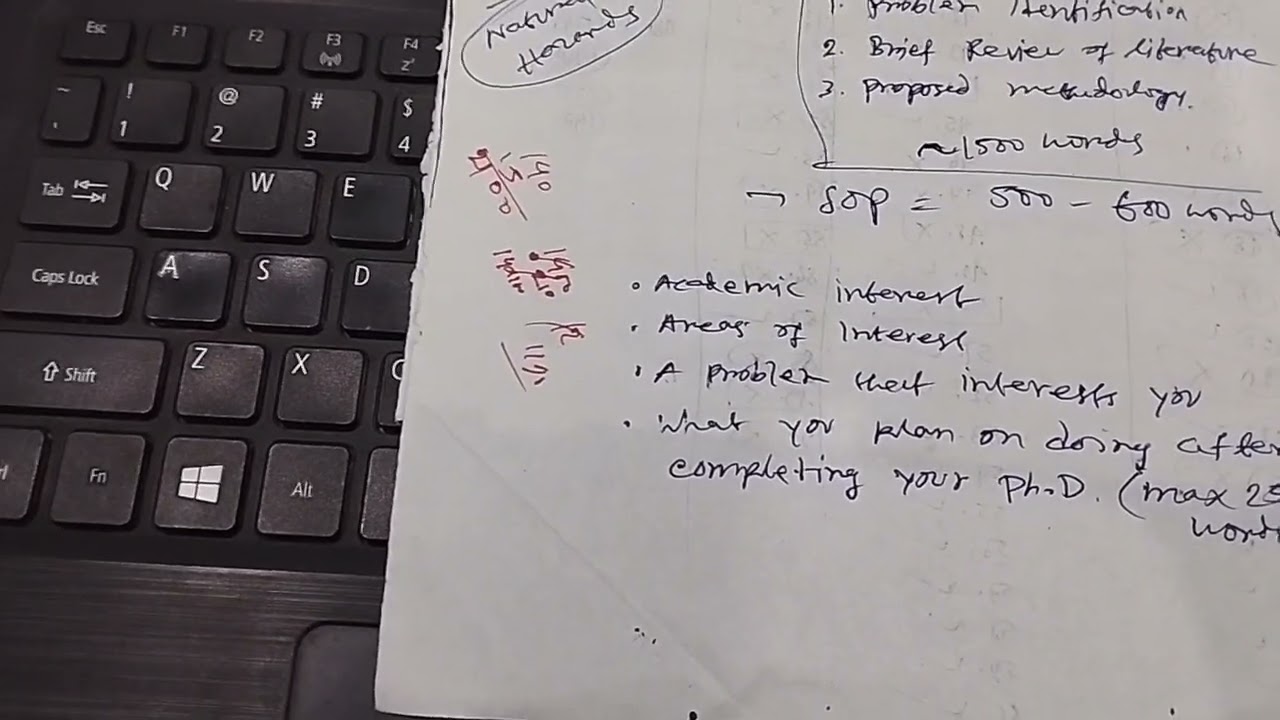 Esc F1 F2 F3 F4
z
~ ! @ # $
1 2 3 4
Tab Q W E
Caps Lock A S D
Shift Z X C
Fn Alt
Natural
Hazards
1. Problem Identification
2. Brief Review of literature
3. Proposed methodology.
~1500 words
→ SOP = 500 - 600 words
• Academic interest
• Areas of Interest
• A problem that interests you
• What you plan on doing after
completing your Ph.D. (max 25
words